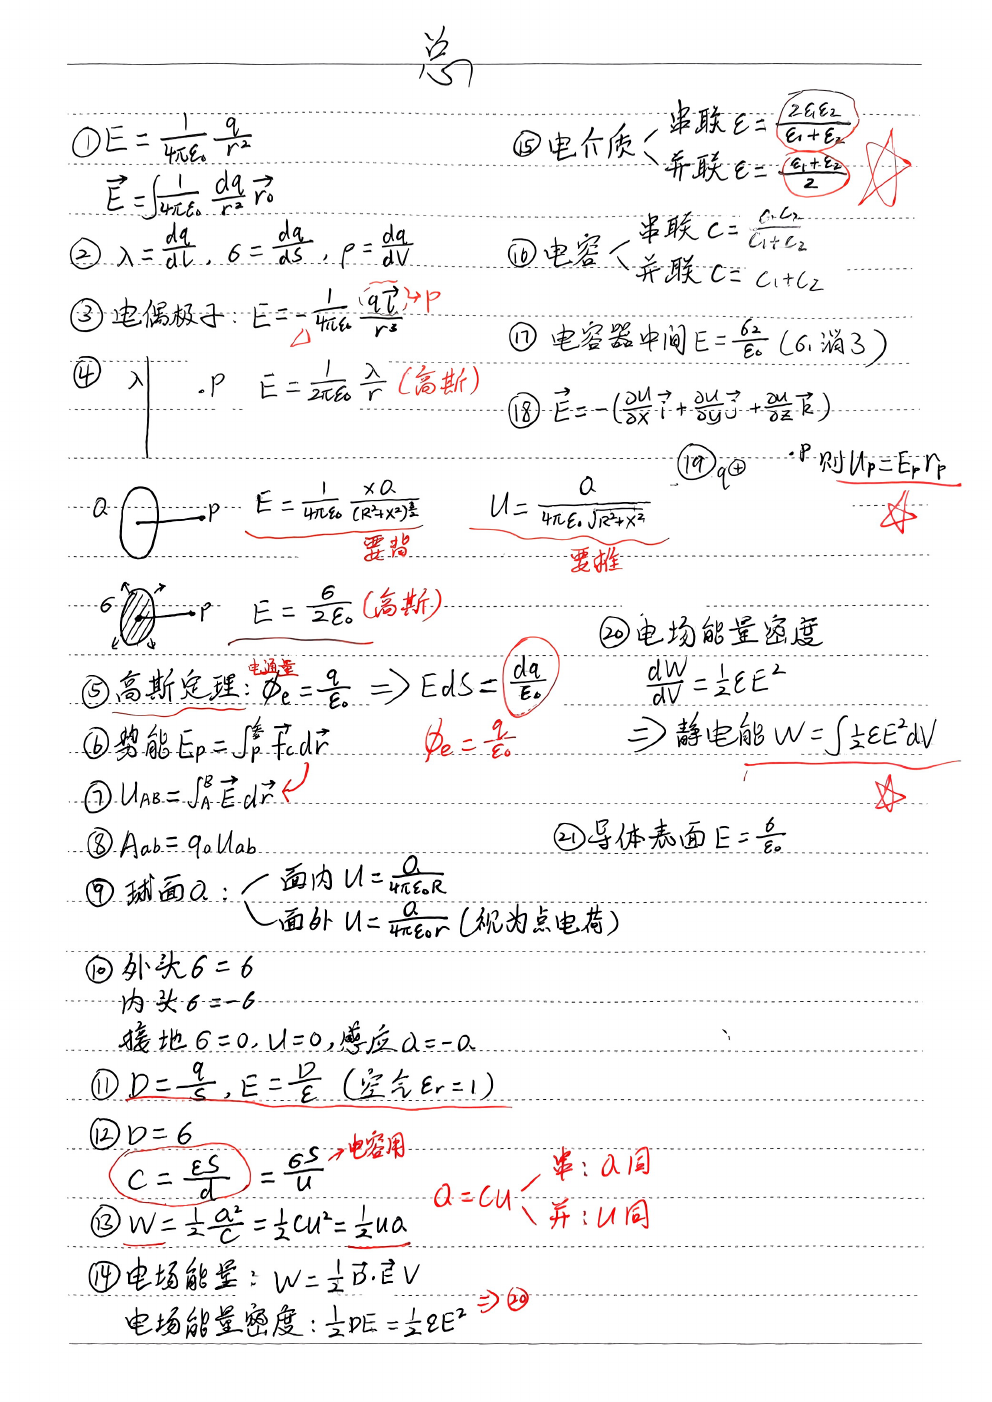 总
① E = 1/4πε₀ q/r²
E⃗ = ∫ 1/4πε₀ dq/r² r⃗₀
② λ = dq/dl, σ = dq/dS, ρ = dq/dV
③ 电偶极子: E = - 1/4πε₀ ql⃗/r³ → P
④ λ .P E = 1/2πε₀ λ/r (高斯)
Q P E = 1/4πε₀ xQ/(R²+x²)^(3/2) U = Q/4πε₀√(R²+x²)
要背 要推
σ P E = σ/2ε₀ (高斯)
⑤ 高斯定理: 电通量 Φe = q/ε₀ ⇒ EdS = dq/ε₀
Φe = q/ε₀
⑥ 势能 Ep = ∫p F⃗c dr⃗
⑦ U_AB = ∫_A^B E⃗ dr⃗
⑧ Aab = q₀Uab
⑨ 球面Q: 面内 U = Q/4πε₀R
面外 U = Q/4πε₀r (视为点电荷)
⑩ 外头σ = σ
内头σ = -σ
接地σ = 0, U = 0, 感应Q = -Q
⑪ D = q/S, E = D/ε (空气 εr = 1)
⑫ D = σ
C = εS/d = σS/U → 电容用
Q = CU 串: Q同
并: U同
⑬ W = 1/2 Q²/C = 1/2 CU² = 1/2 UQ
⑭ 电场能量: W = 1/2 D⃗·E⃗ V
电场能量密度: 1/2 DE = 1/2 εE² ⇒ ⑳
⑮ 电介质 串联 ε = 2ε₁ε₂/ε₁+ε₂
并联 ε = ε₁+ε₂/2
⑯ 电容 串联 C = C₁C₂/C₁+C₂
并联 C = C₁+C₂
⑰ 电容器中间 E = σ₂/ε₀ (σ₁消了)
⑱ E⃗ = -(∂U/∂x i⃗ + ∂U/∂y j⃗ + ∂U/∂z k⃗)
⑲ q⊕ .P 则 Up = Ep rp
⑳ 电场能量密度
dW/dV = 1/2 εE²
⇒ 静电能 W = ∫ 1/2 εE² dV
㉑ 导体表面 E = σ/ε₀